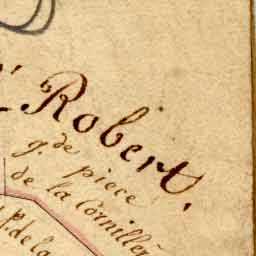 Robert,
g. de piece
de la Cornillèr
P. de la